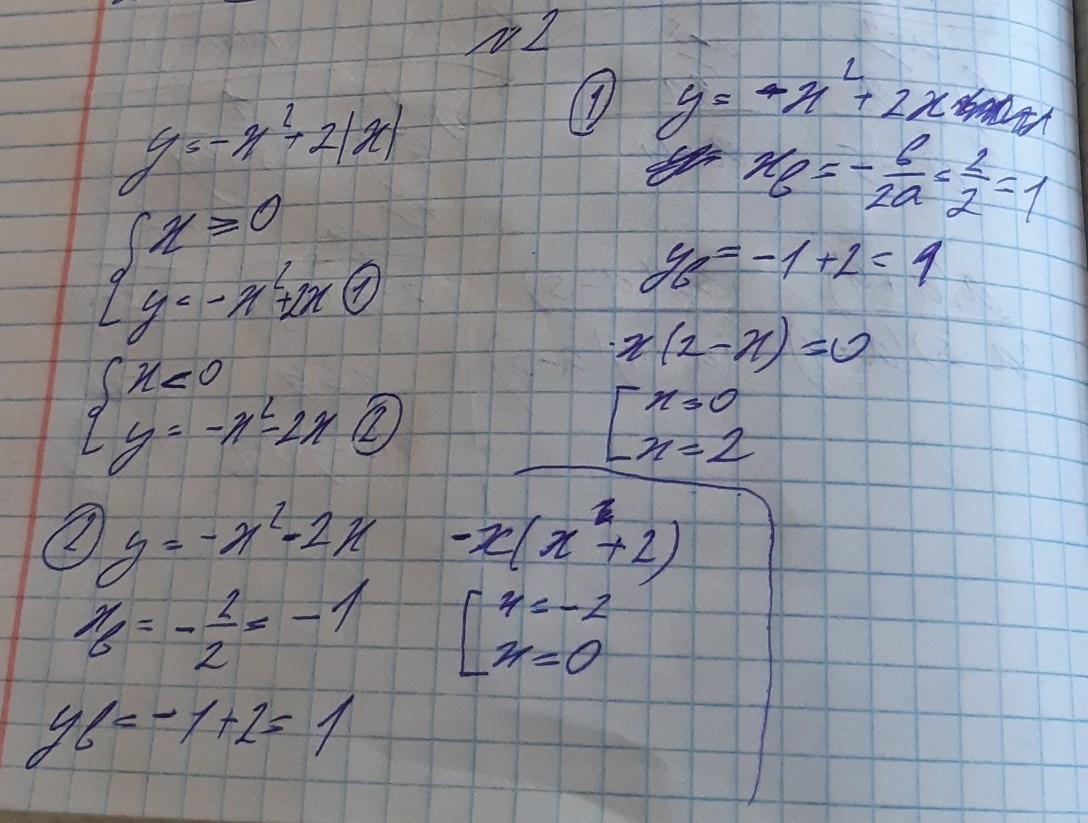 №2
y = -x² + 2|x|
{ x ≥ 0
{ y = -x² + 2x ①
{ x < 0
{ y = -x² - 2x ②
① y = -x² + 2x
xв = -b/2a = 2/2 = 1
yв = -1 + 2 = 1
x(2 - x) = 0
[ x = 0
[ x = 2
② y = -x² - 2x
xв = -2/2 = -1
yв = -1 + 2 = 1
-x(x + 2)
[ x = -2
[ x = 0